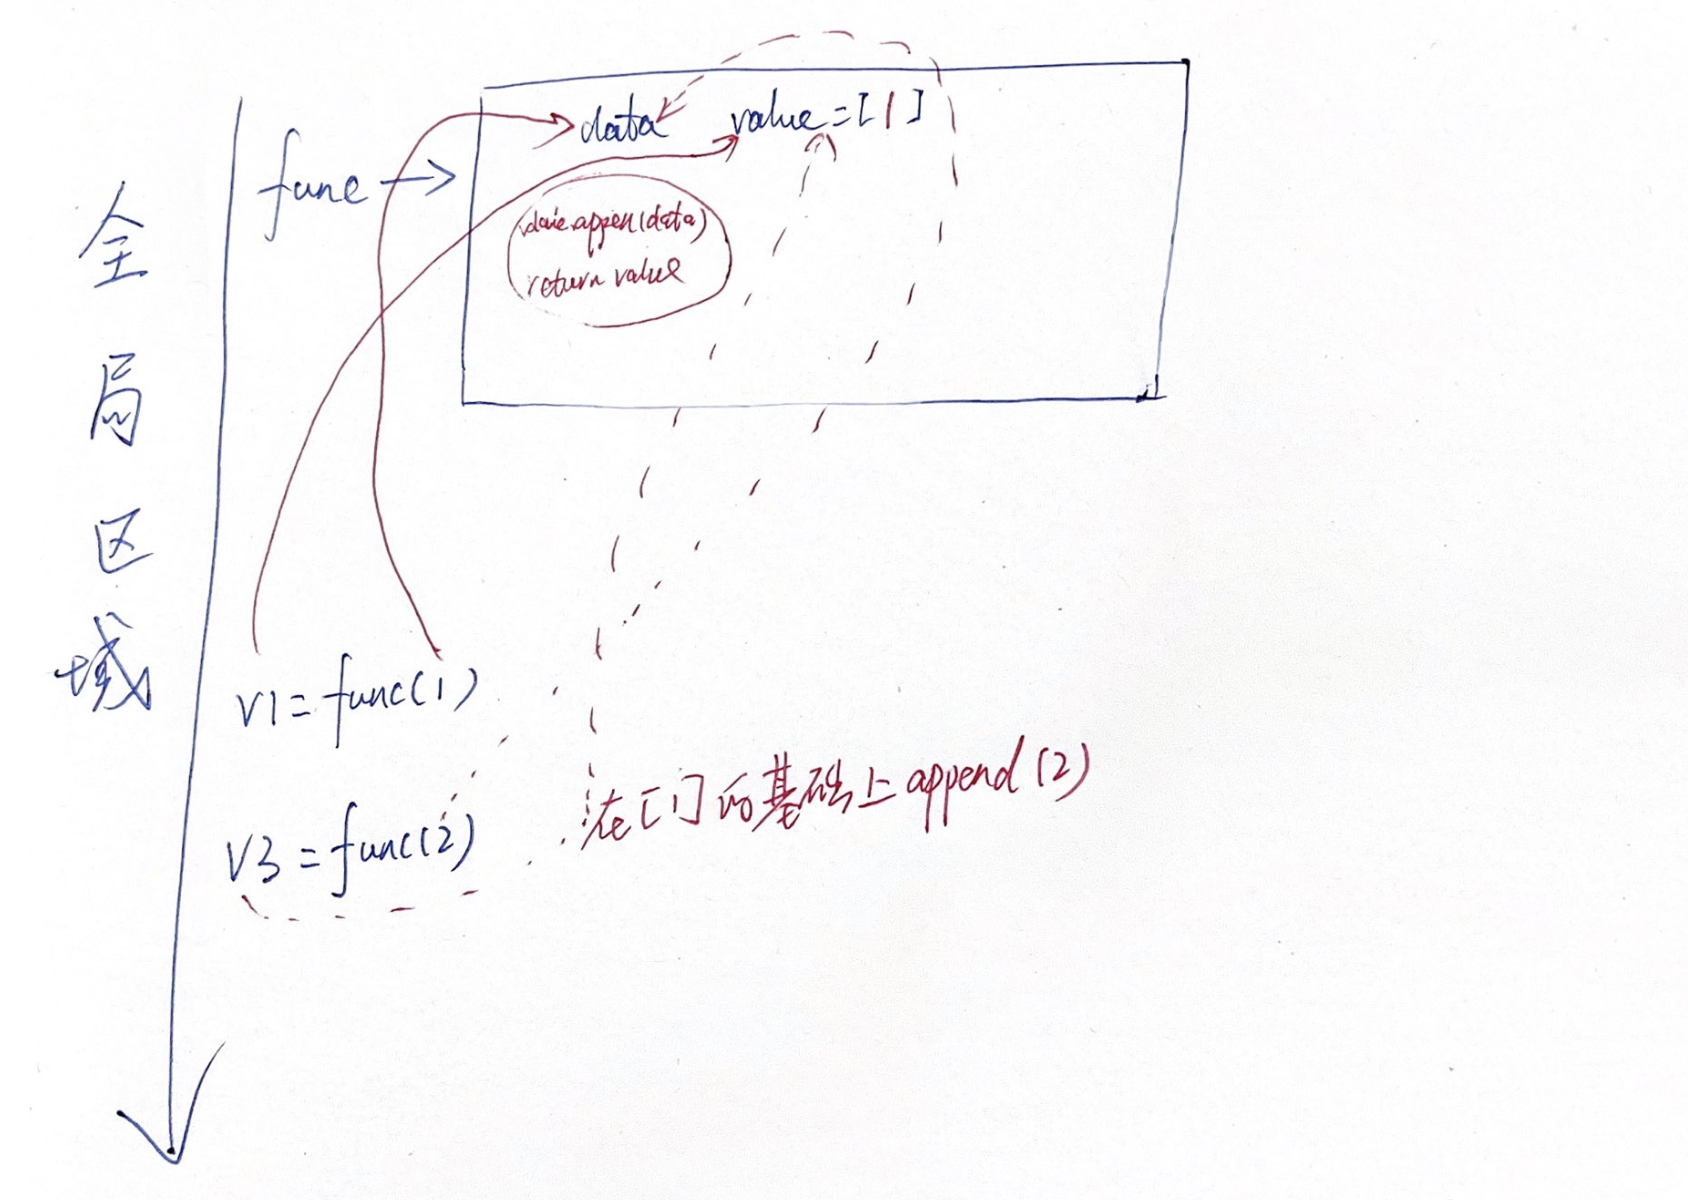 全局区域
func
data value=[1]
.appen(data)
return value
v1=func(1)
v3=func(2)
在[1]的基础上append(2)